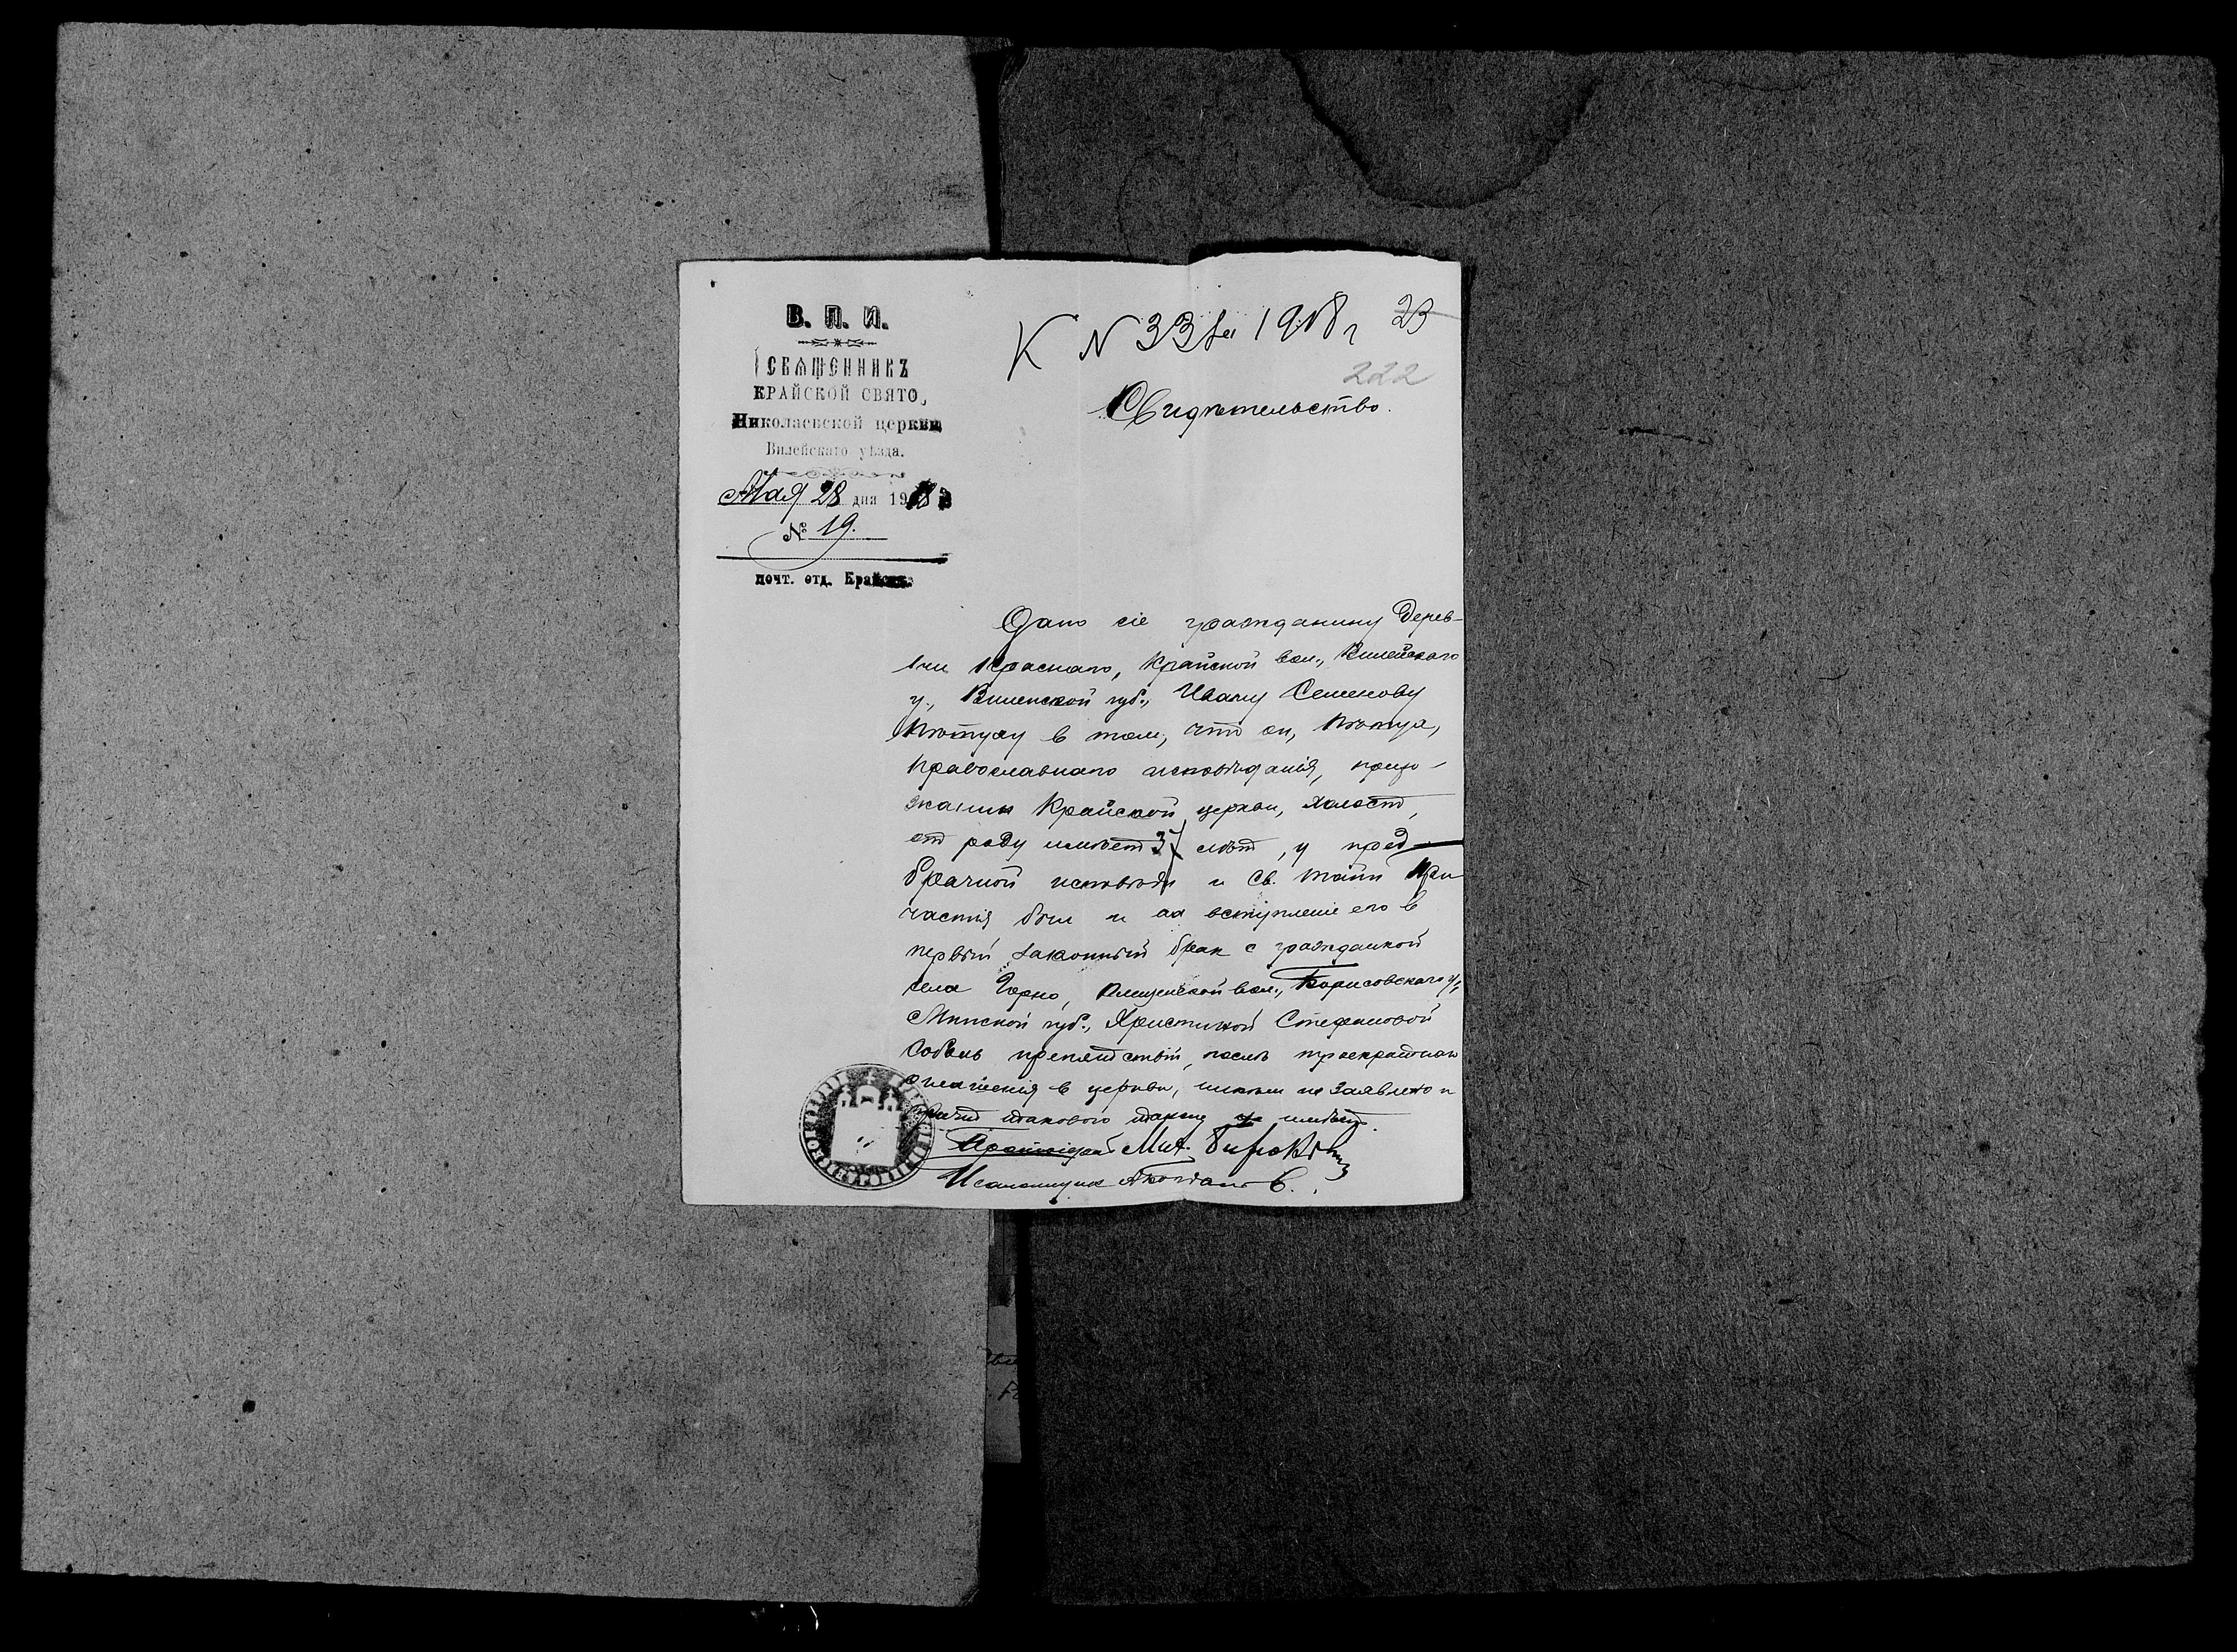 В. П. И.
СВЯЩЕННИКЪ
КРАЙСКОЙ СВЯТО,
Николаевской церкви
Вилейскаго уѣзда.
Мая 28 дня 1918
№ 19.
почт. отд. Крайскъ
К N 33 за 1918 г 23
222
Свидѣтельство.
Дано сіе гражданину Дерев-
ни Краснаго, Крайской вол., Вилейскаго
у., Виленской губ., Ивану Семенову
в том, что он,
Православнаго исповѣданія, прихо-
жанин Крайской церкви, холост,
от роду имѣет 37 лѣт, у пред-
брачной исповѣди и Св. Тайн При
частія был и на вступленіе его в
первый законный брак с гражданкой
села Горно, вол., Борисовскаго у.,
Минской губ., Христиной Стефановой
препятствій, послѣ троекратнаго
оглашенія в церкви, никѣм не заявлено и
причт таковаго также не имѣет.
Протоіерей Мит.
Псаломщик